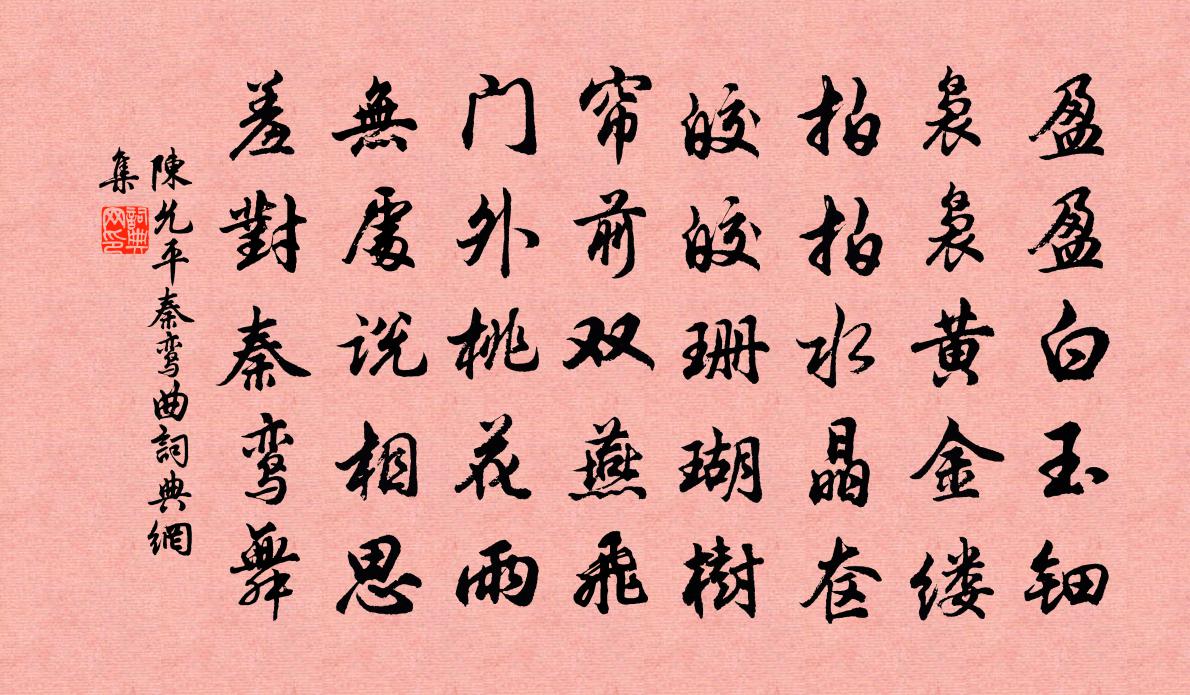 盈盈白玉钿
袅袅黄金缕
拍拍水晶奁
皎皎珊瑚樹
帘前双燕飛
门外桃花雨
無處说相思
羞對秦鸾舞
陳允平秦鸾曲詞典網
集
詞典
网印